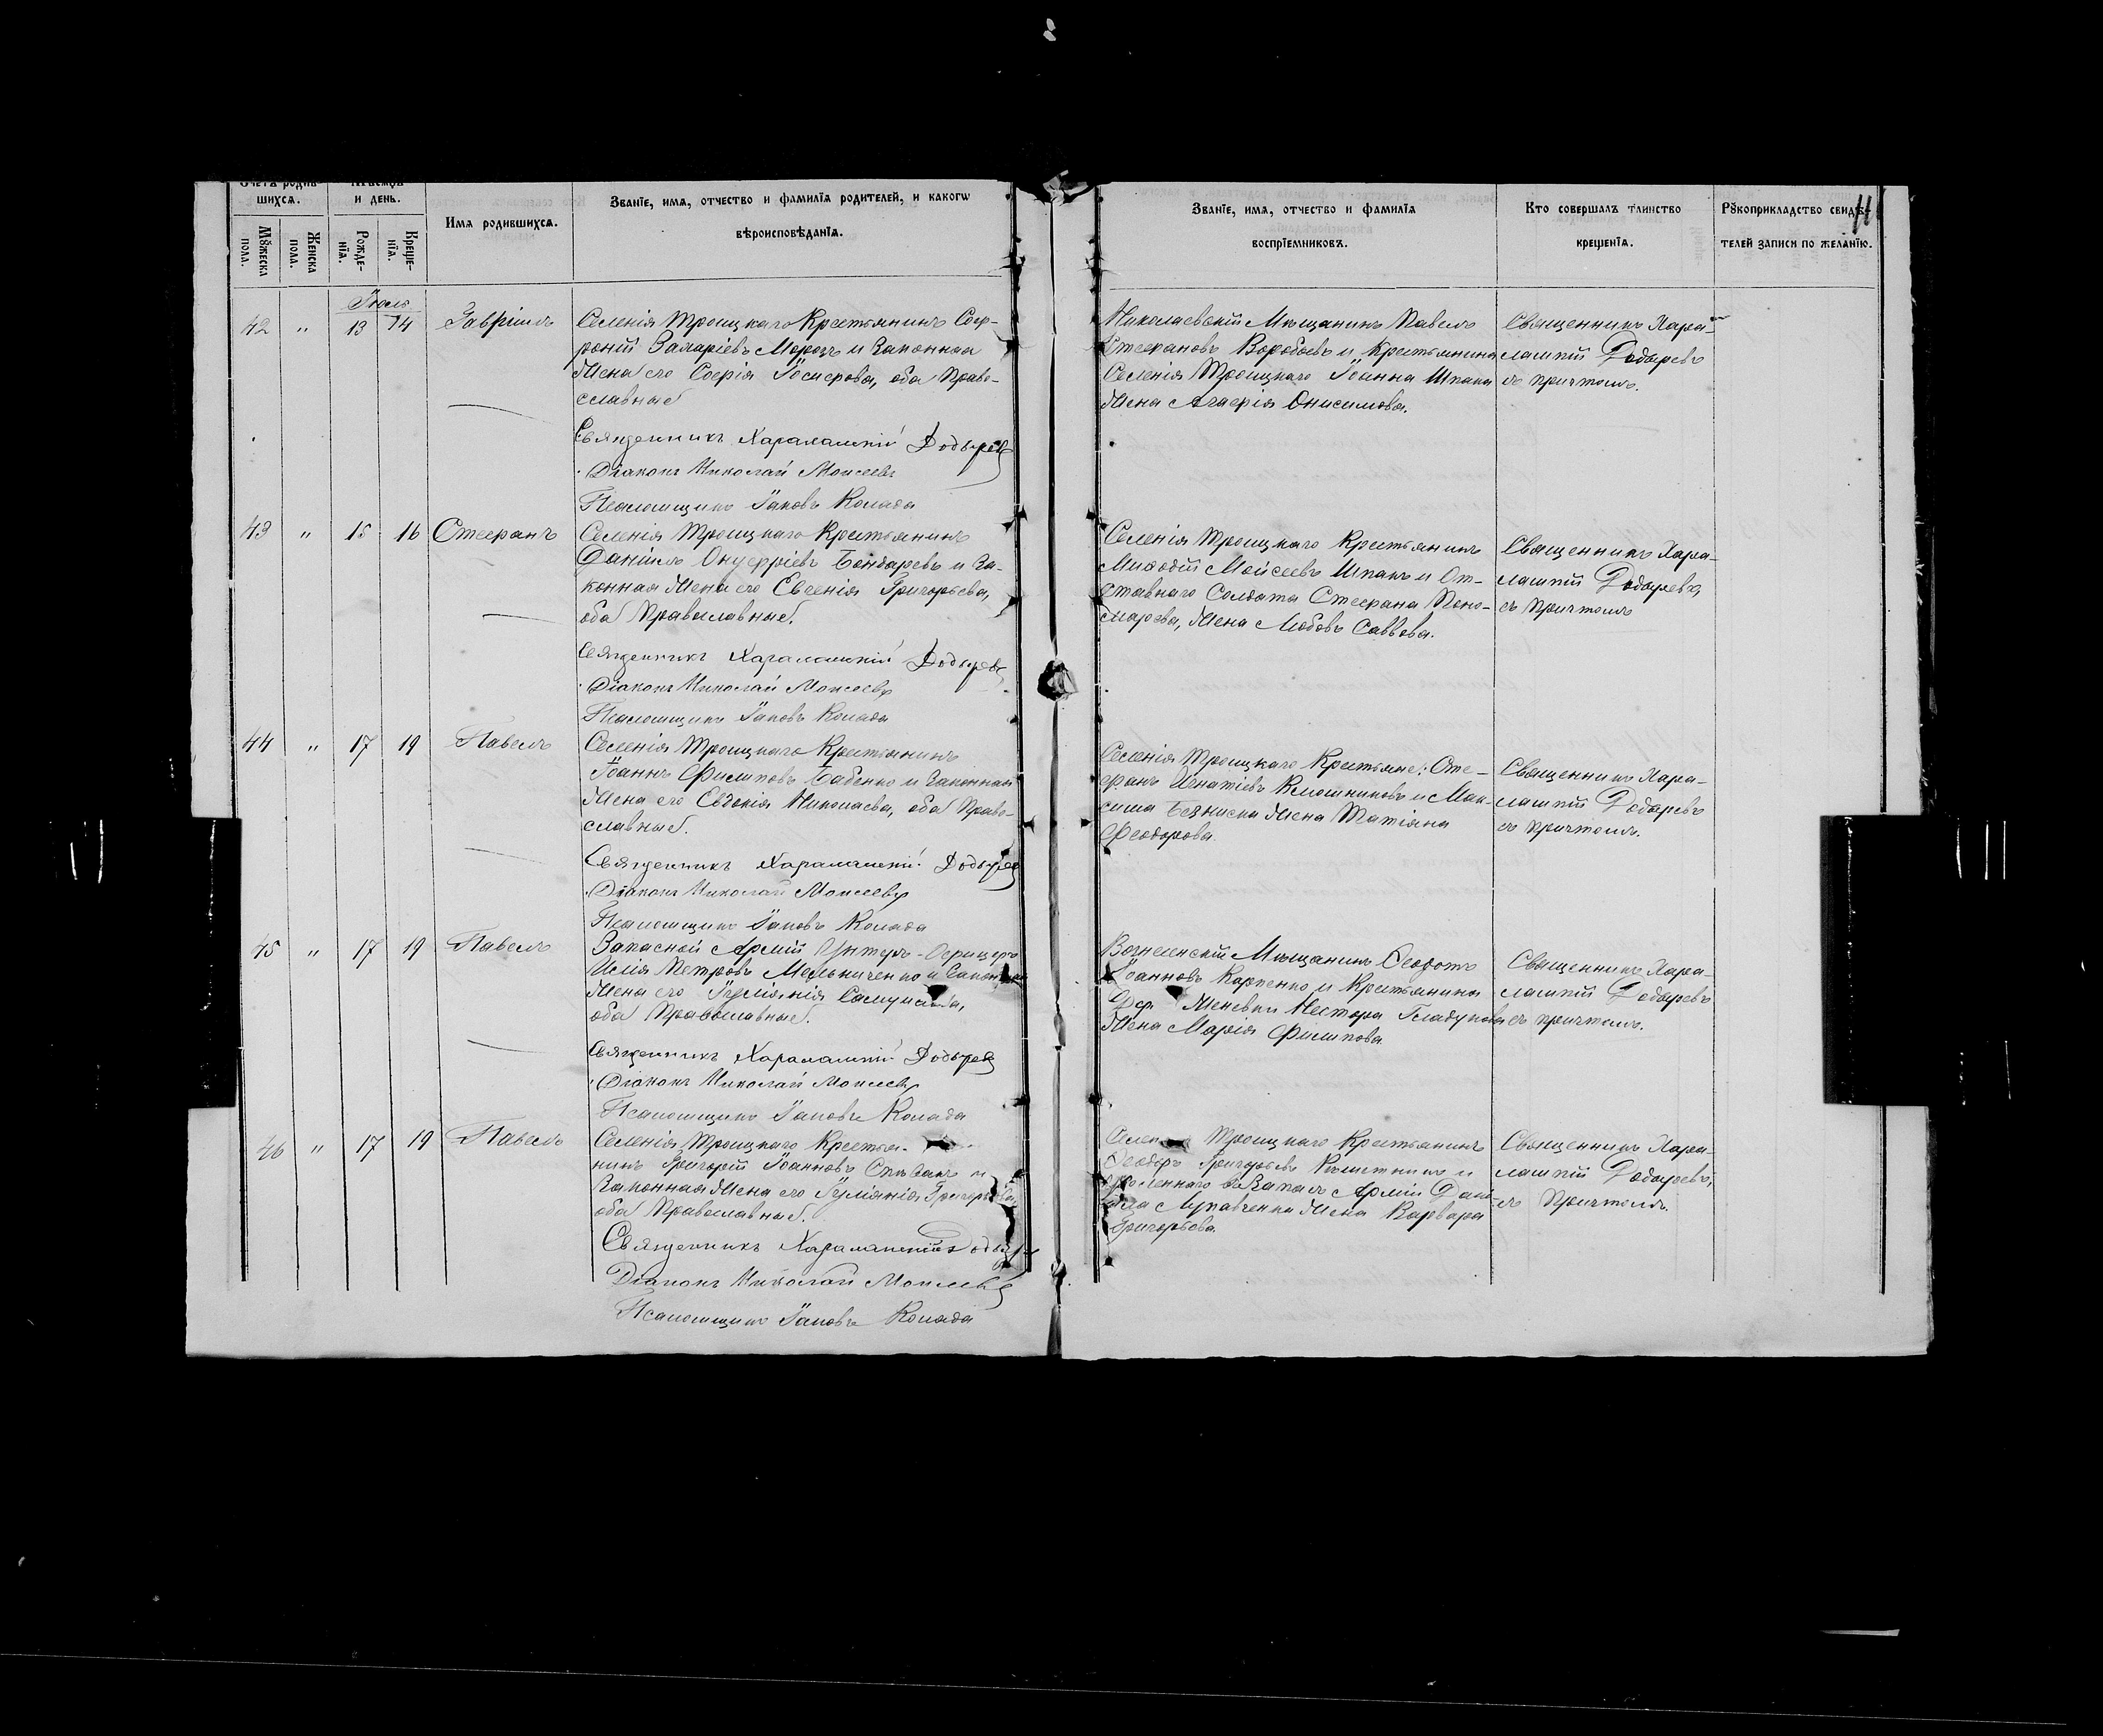 Счетъ родив-
шихсѧ.
Мꙋжеска пола.
Женска пола.
Мѣсяцъ
и день.
Рожде-
нїѧ.
Креще-
нїѧ.
Имѧ родившихсѧ.
Званїе, имѧ, отчество и фамилїѧ родителей, и какогѡ
вѣроисповѣданїѧ.
Званїе, имѧ, отчество и фамилїѧ
воспрїемниковъ.
Кто совершалъ таинство
крещенїѧ.
Рꙋкоприкладство свидѣ-
телей записи по желанїю.
Іюль
42 " 13 14 Гавріилъ
Селенія Троицкаго Крестьянинъ Соф-
роній Захаріевъ Морозъ и Законная
Жена его Софія Іосифова, оба Право-
славные
Священникъ Харалампій Додыревъ
Діаконъ Николай Моисеевъ
Псаломщикъ Іаковъ Колада
Николаевскій Мѣщанинъ Павелъ
Стефановъ Воробьевъ и Крестьянина
Селенія Троицкаго Іоанна Шпака
Жена Агафія Онисимова.
Священникъ Хара-
лампій Додыревъ
съ причтомъ.
43 " 15 16 Стефанъ
Селенія Троицкаго Крестьянинъ
Даніилъ Онуфріевъ Бондаревъ и За-
конная Жена его Евгенія Григорьева,
оба Православные.
Священникъ Харалампій Додыревъ
Діаконъ Николай Моисеевъ
Псаломщикъ Іаковъ Колада
Селенія Троицкаго Крестьянинъ
Меѳодій Моисеевъ Шпакъ и От-
ставнаго Солдата Стефана Поно-
марева, Жена Любовь Саввова.
Священникъ Хара-
лампій Додыревъ,
съ причтомъ
44 " 17 19 Павелъ
Селенія Троицкаго Крестьянинъ
Іоаннъ Филиповъ Бабенко и Законная
Жена его Евдокія Николаева, оба Право-
славные.
Священникъ Харалампій Додыревъ
Діаконъ Николай Моисеевъ
Псаломщикъ Іаковъ Колада
Селенія Троицкаго Крестьяне: Сте-
фанъ Игнатіевъ Клюшниковъ и Мак-
сима Жена Татіана
Ѳеодорова
Священникъ Хара-
лампій Додыревъ
съ причтомъ.
45 " 17 19 Павелъ
Запасной Арміи Унтеръ-Офицеръ
Илія Петровъ Мельниченко и Законная
Жена его Іуліанія
оба Православные.
Священникъ Харалампій Додыревъ
Діаконъ Николай Моисеевъ
Псаломщикъ Іаковъ Колада
Вознесенскій Мѣщанинъ Ѳеодотъ
Іоанновъ Карпенко и Крестьянина
Дер. Нестора Гладункова
Жена Марія Филипова
Священникъ Хара-
лампій Додыревъ
съ причтомъ.
46 " 17 19 Павелъ
Селенія Троицкаго Крестья-
нинъ Григорій Іоанновъ Спѣвакъ и
Законная Жена его Іуліанія Григорьева,
оба Православные.
Священникъ Харалампій Додыревъ
Діаконъ Николай Моисеевъ
Псаломщикъ Іаковъ Колада
Селенія Троицкаго Крестьянинъ
Ѳеодоръ Григорьевъ и
уволеннаго въ Запасъ Арміи Дані-
ила Жена Варвара
Григорьева.
Священникъ Хара-
лампій Додыревъ,
съ Причтомъ.